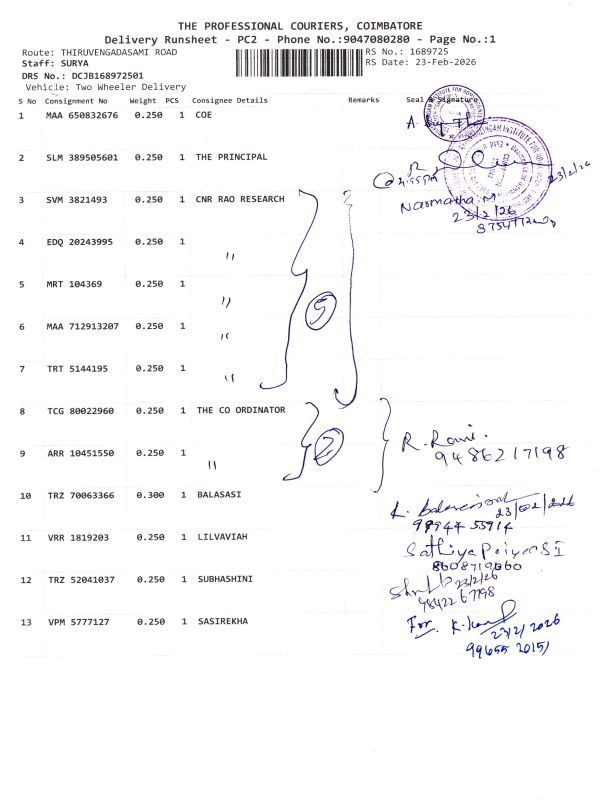 THE PROFESSIONAL COURIERS, COIMBATORE
Delivery Runsheet - PC2 - Phone No.:9047080280 - Page No.:1
Route: THIRUVENGADASAMI ROAD RS No.: 1689725
Staff: SURYA RS Date: 23-Feb-2026
DRS No.: DCJB168972501
Vehicle: Two Wheeler Delivery
S No Consignment No Weight PCS Consignee Details Remarks Seal & Signature
1 MAA 650832676 0.250 1 COE
2 SLM 389505601 0.250 1 THE PRINCIPAL
23/2/26
3 SVM 3821493 0.250 1 CNR RAO RESEARCH
Narmatha.M
23/2/26
4 EDQ 20243995 0.250 1 "
5 MRT 104369 0.250 1 "
5
6 MAA 712913207 0.250 1 "
7 TRT 5144195 0.250 1 "
8 TCG 80022960 0.250 1 THE CO ORDINATOR
2 R. Rani.
9 ARR 10451550 0.250 1 " 9486217198
10 TRZ 70063366 0.300 1 BALASASI
23/02/2026
99944 55914
11 VRR 1819203 0.250 1 LILVAVIAH
8608719660
12 TRZ 52041037 0.250 1 SUBHASHINI
23/2/26
98422 67798
13 VPM 5777127 0.250 1 SASIREKHA
For.
23/2/2026
99655 20151